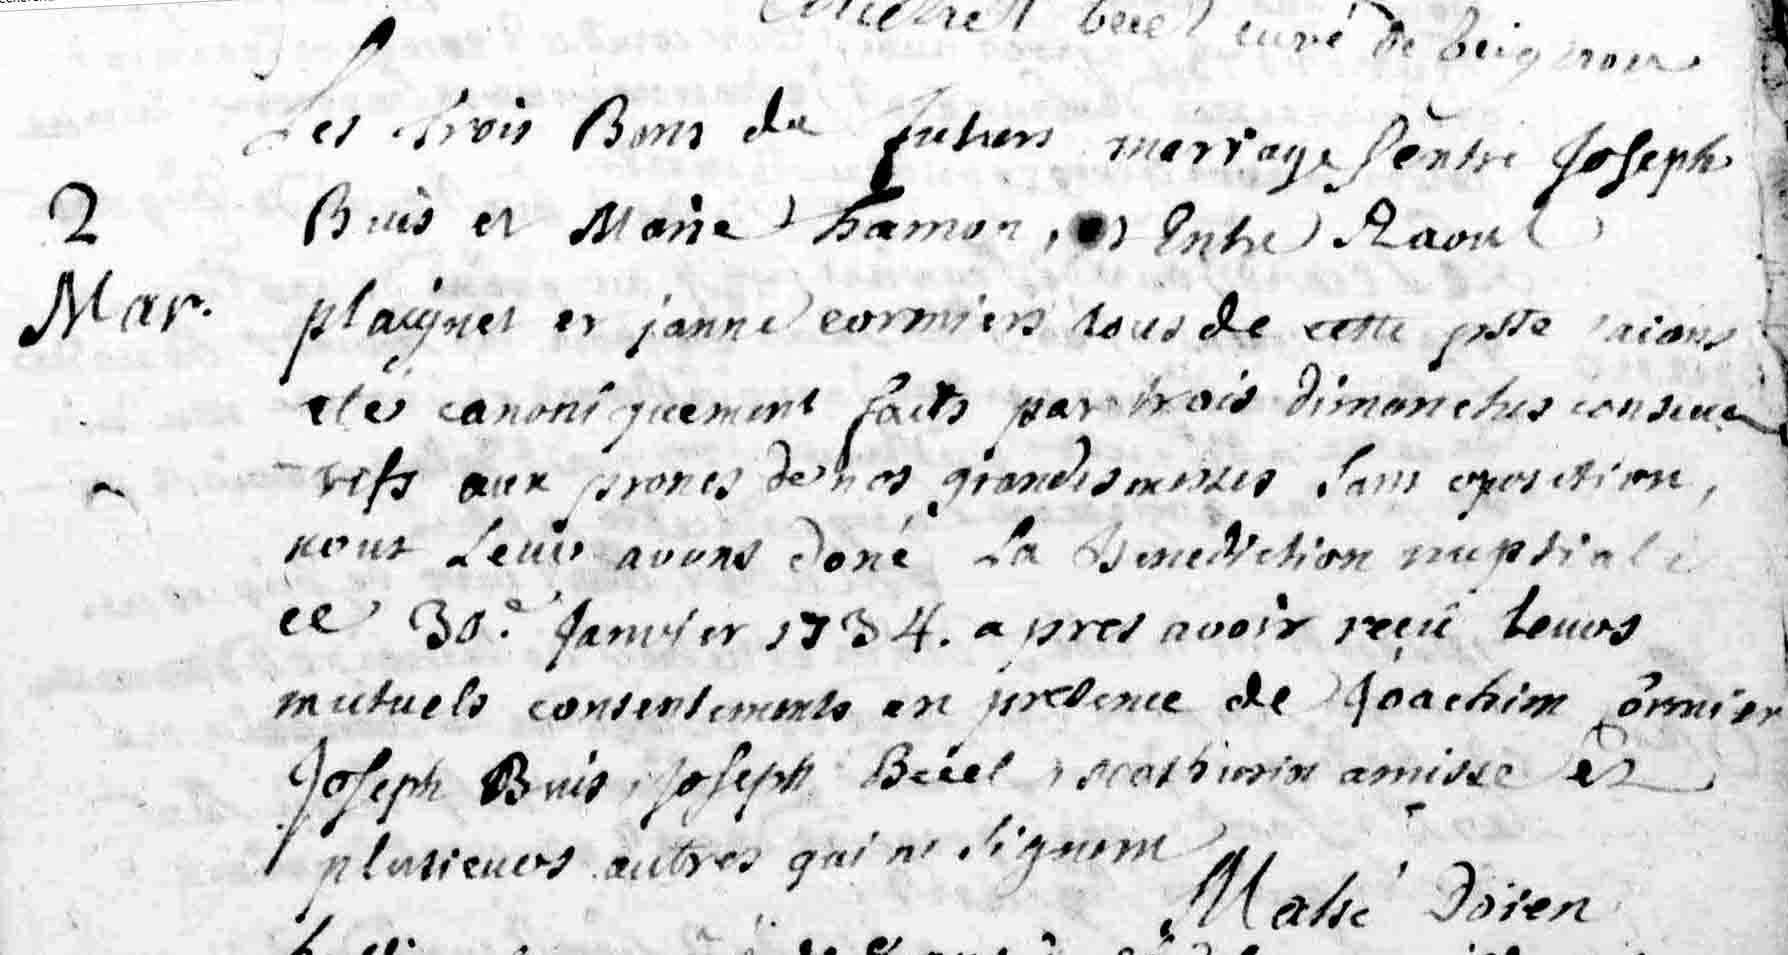 becel curé de beignon
Les trois Bans de futurs mariages entre Joseph
2 Buis et Marie hamon, et Entre Raoul
Mar. plaignet et janne cormiers tous de cette psse aians
eté canoniquement faits par trois dimanches consecu
tifs aux prones de nos grandes messes sans oposition,
nous Leur avons doné La Benediction nuptiale
ce 30.e Janvier 1734. apres avoir reçû leurs
mutuels consentements en presence de Joachim Cormier
Joseph Buis, Joseph Becel, mathurin amisse et
plusieurs autres qui ne signent
Mahé Doien